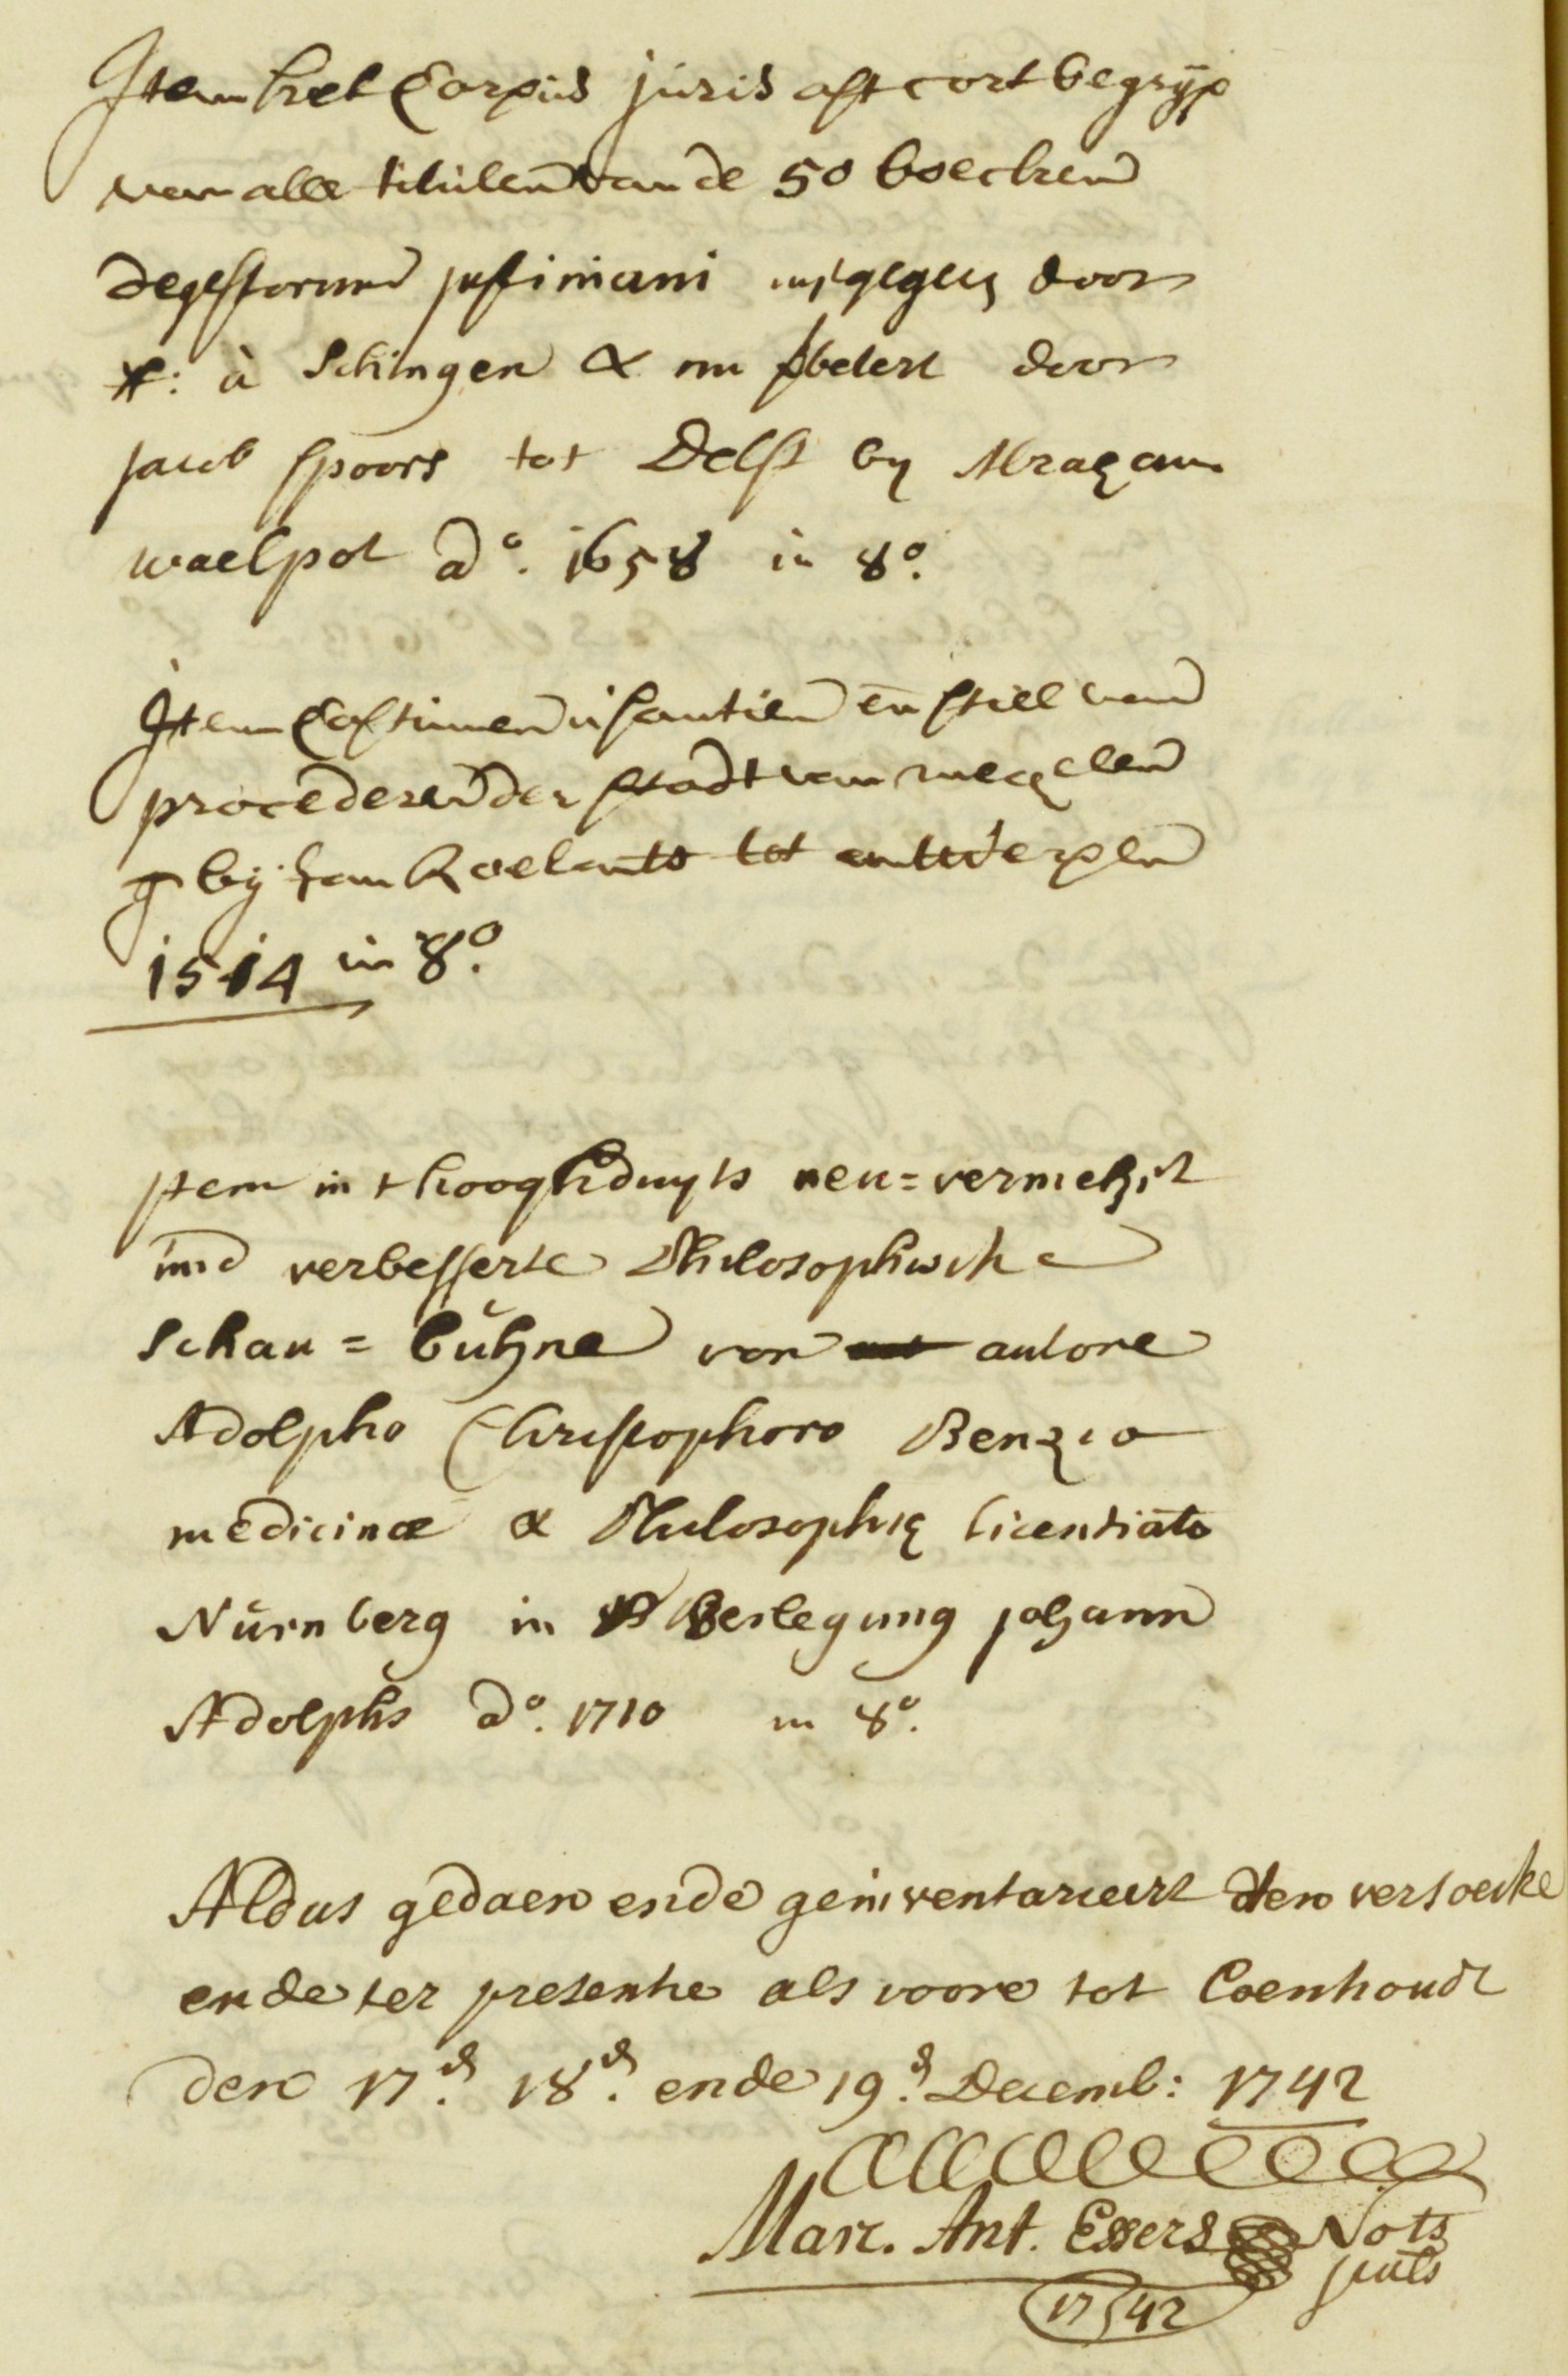 Item het Corpus juris oft cort begryp
van alle titulen van de 50 boecken
degestorum justiniani uÿtgegeven door
à Schingen & nu verbetert door
jacob spoors tot Delft by Abraham
waelpot a°. 1658 in 8°.
Item Costumen usantien en stiel van
procederen der stadt van mechelen
bÿ han Roelants tot antwerpen
1514 in 8°.
jtem in t hooghduyts neu=vermehrt
und verbesserte Philosophische
Schau=bühne von autore
Adolpho Christophoro Benzio
medicinæ & Philosophię licentiato
Nürnberg in Verlegung johann
Adolphs a°. 1710 in 8°.
Aldus gedaen ende geinventarieert ten versoecke
ende ter presentie als voore tot Coenhoudt
den 17.n 18.n ende 19.n Decemb: 1742
Marc. Ant. Essers Nots
puls
1742